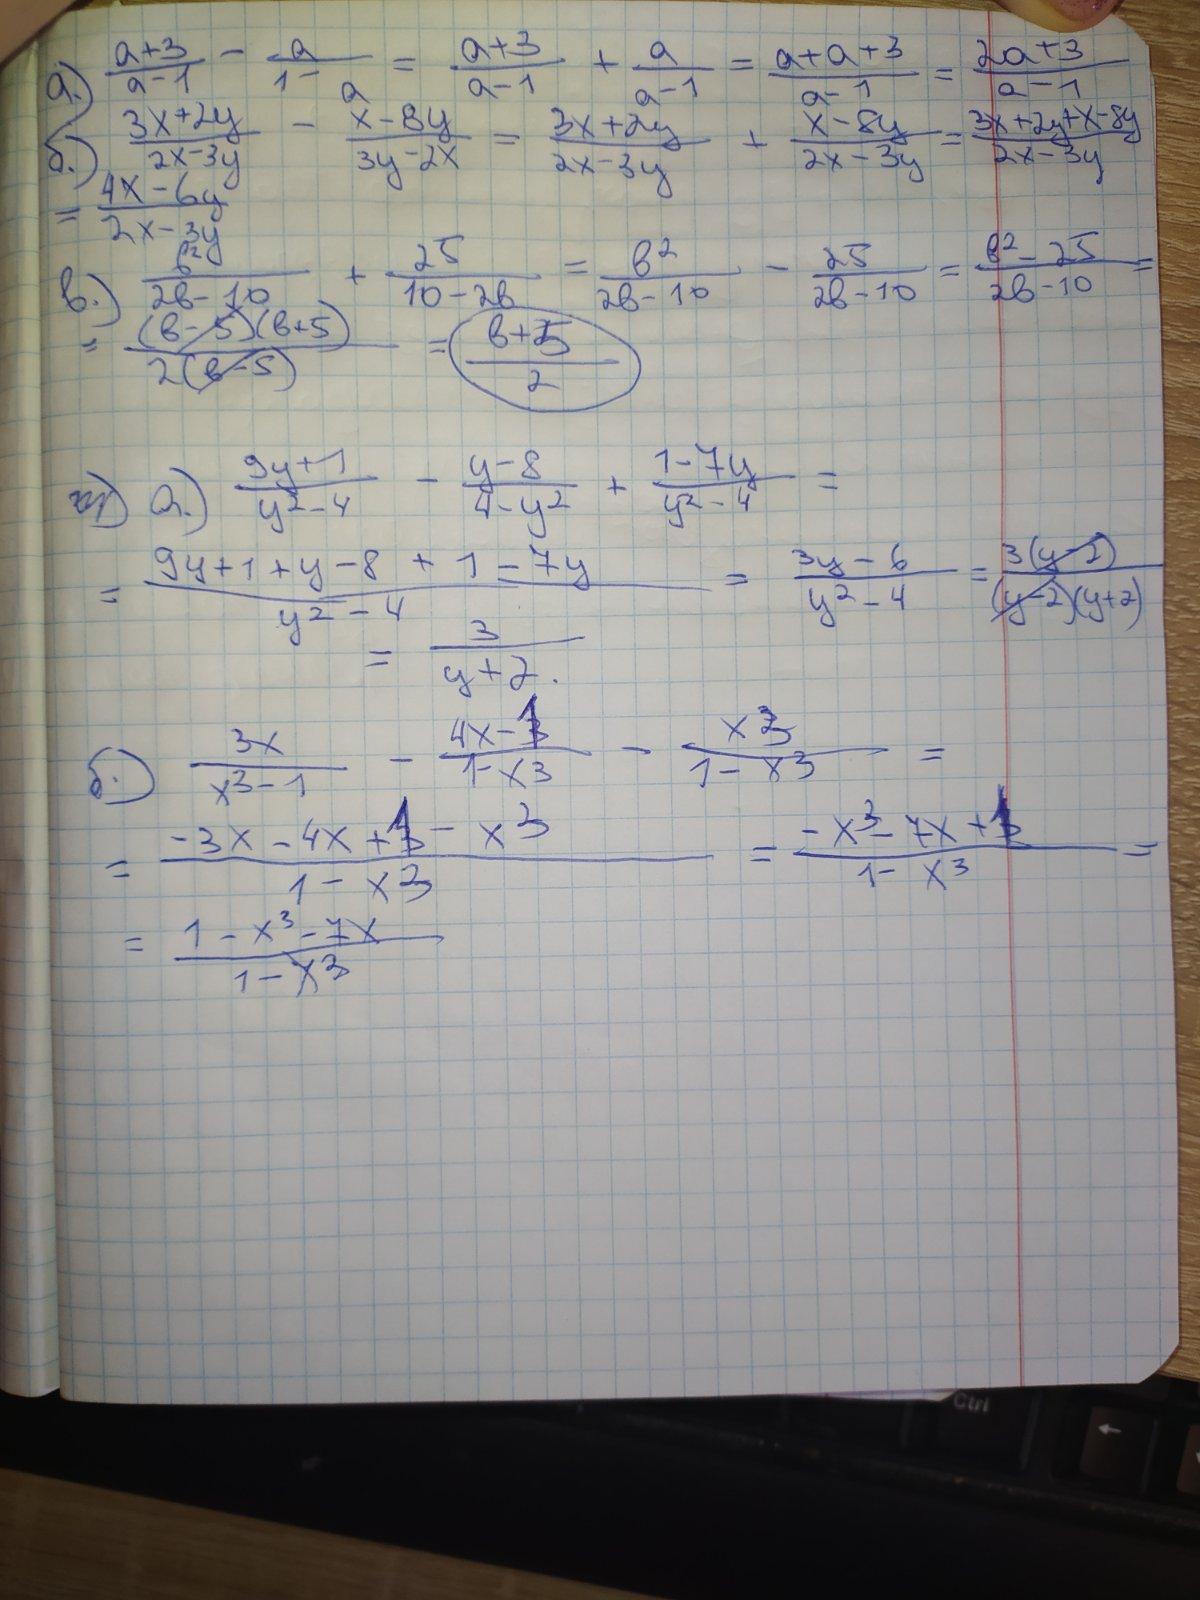 а.) (a+3)/(a-1) - a/(1-a) = (a+3)/(a-1) + a/(a-1) = (a+a+3)/(a-1) = (2a+3)/(a-1)
б.) (3x+2y)/(2x-3y) - (x-8y)/(3y-2x) = (3x+2y)/(2x-3y) + (x-8y)/(2x-3y) = (3x+2y+x-8y)/(2x-3y)
= (4x-6y)/(2x-3y)
в.) в²/(2в-10) + 25/(10-2в) = в²/(2в-10) - 25/(2в-10) = (в²-25)/(2в-10) =
= (в-5)(в+5)/2(в-5) = (в+5)/2
а.) (9y+1)/(y²-4) - (y-8)/(4-y²) + (1-7y)/(y²-4) =
= (9y+1+y-8+1-7y)/(y²-4) = (3y-6)/(y²-4) = 3(y-2)/(y-2)(y+2)
= 3/(y+2).
б.) 3x/(x³-1) - (4x-1)/(1-x³) - x³/(1-x³) =
= (-3x-4x+1-x³)/(1-x³) = (-x³-7x+1)/(1-x³) =
= (1-x³-7x)/(1-x³)
Ctrl
←